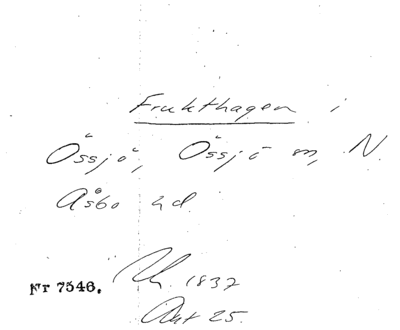 Frukthagen i
Össjö, Össjö sn, N.
Åsbo hd.
Nr 7546.
1837
Akt 25.